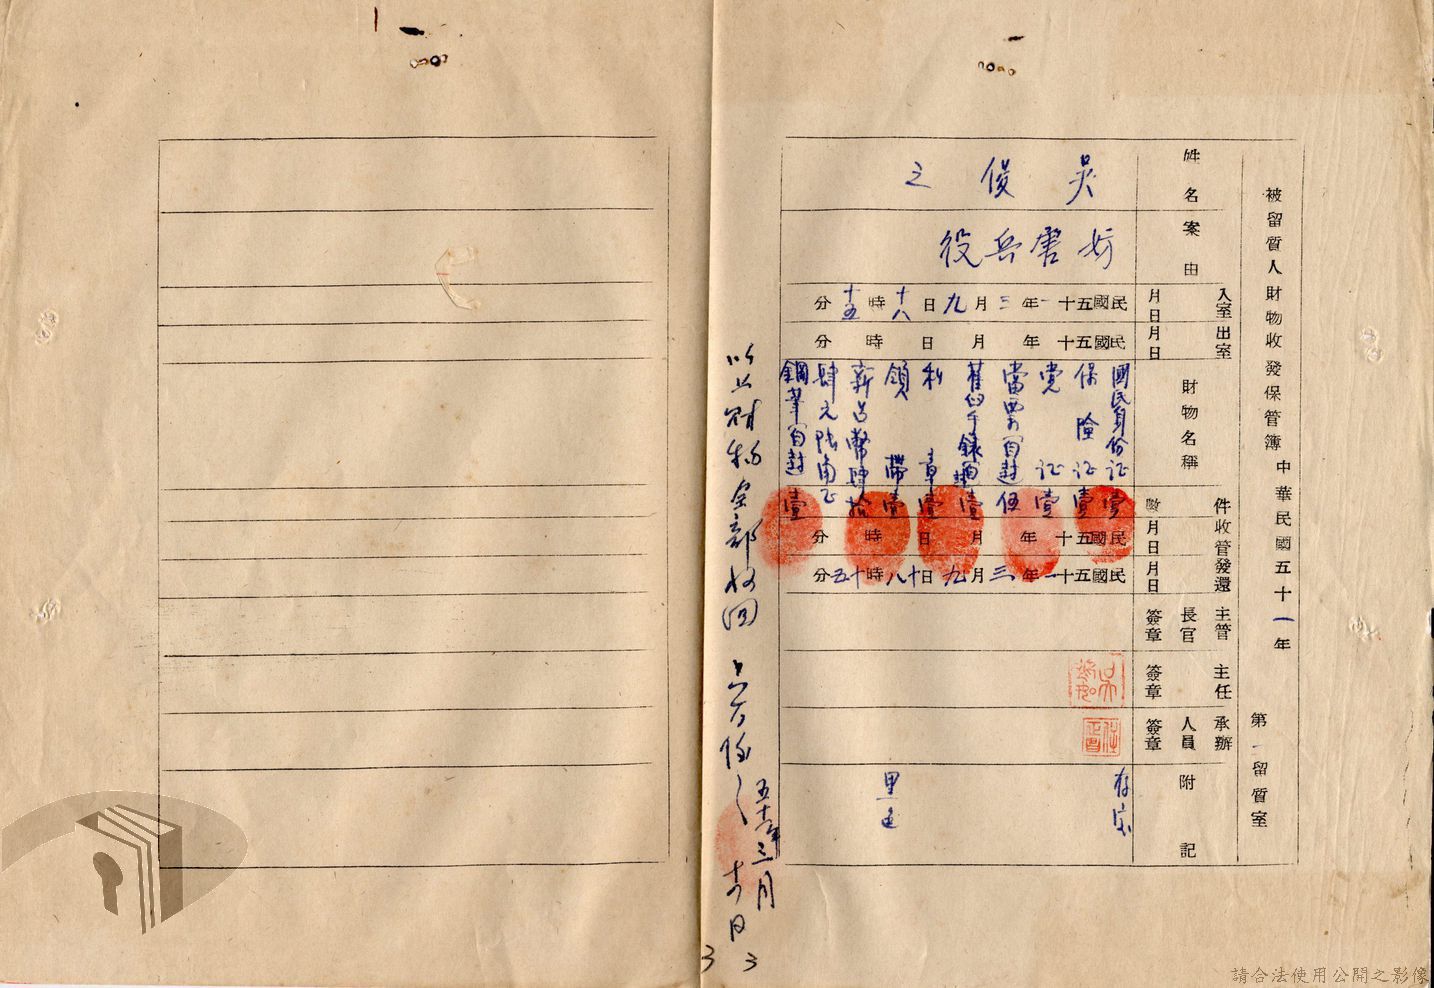 被留質人財物收發保管簿
中華民國五十一年
第一留質室
姓名
吳俊之
案由
妨害兵役
入室月日
民國五十一年三月九日十八時十五分
出室月日
民國五十年月日時分
財物名稱
件數
國民身份证壹
保險证壹
党证壹
當票百封伍
舊
私章壹
領帶壹
新台幣肆拾
肆元陸角正
鋼筆百封壹
收管月日
民國五十年月日時分
發還月日
民國五十一年三月九日十八時五十分
主管長官簽章
主任簽章
承辦人員簽章
附記
以上財物全部收回
五十一年三月
日
3 3
請合法使用公開之影像